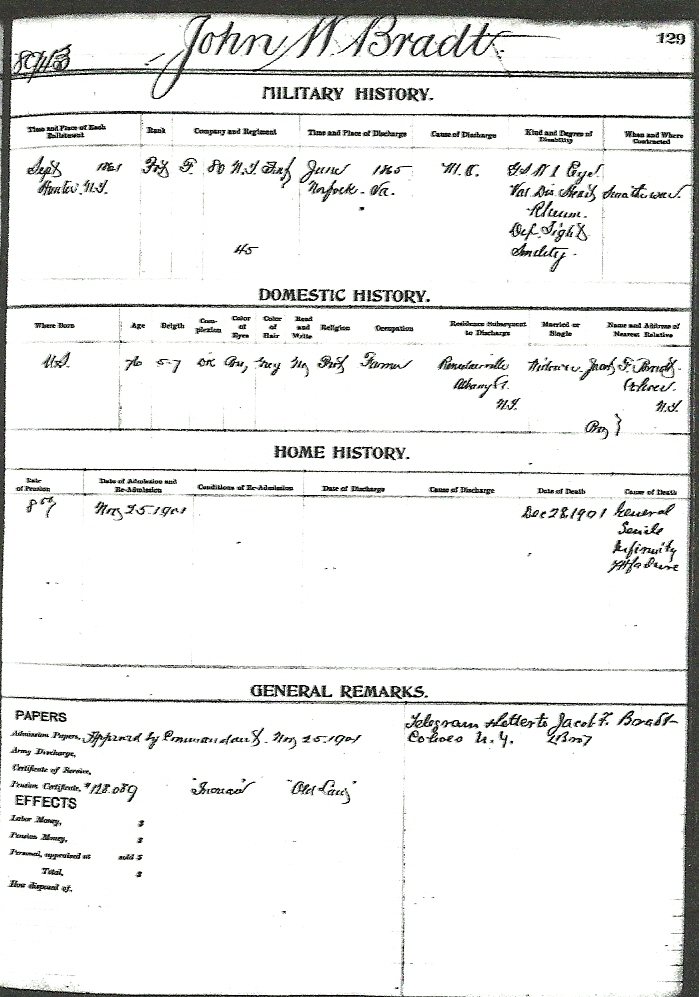 John W. Bradt.
129
MILITARY HISTORY.
Time and Place of Each Enlistment
Rank
Company and Regiment
Time and Place of Discharge
Cause of Discharge
Kind and Degree of Disability
When and Where Contracted
Sept 1861
Hunter N.Y.
F. 80 N.Y. Inf
June 1865
Norfolk. Va.
G.S.W. L Eye
Val Dis Heart
Rheum.
Def. Sight
45
DOMESTIC HISTORY.
Where Born
Age
Height
Complexion
Color of Eyes
Color of Hair
Read and Write
Religion
Occupation
Residence Subsequent to Discharge
Married or Single
Name and Address of Nearest Relative
U.S.
76
5-7
Dk
Grey
Prot
Farmer
Rensselaerville
Albany Co.
N.Y.
Widower
Jacob F. Bradt
Cohoes
N.Y.
Bro}
HOME HISTORY.
Rate of Pension
Date of Admission and Re-Admission
Conditions of Re-Admission
Date of Discharge
Cause of Discharge
Date of Death
Cause of Death
8 00
Nov 25-1901
Dec 28, 1901
General
Senile
GENERAL REMARKS.
PAPERS
Admission Papers, Approved by Commandant. Nov 25-1901
Army Discharge,
Certificate of Service,
Pension Certificate, # 128.089 "Old Law"
EFFECTS
Labor Money, $
Pension Money, $
Personal, appraised at sold $
Total, $
How disposed of,
Telegram & letter to Jacob F. Bradt
Cohoes N.Y. (Bro)